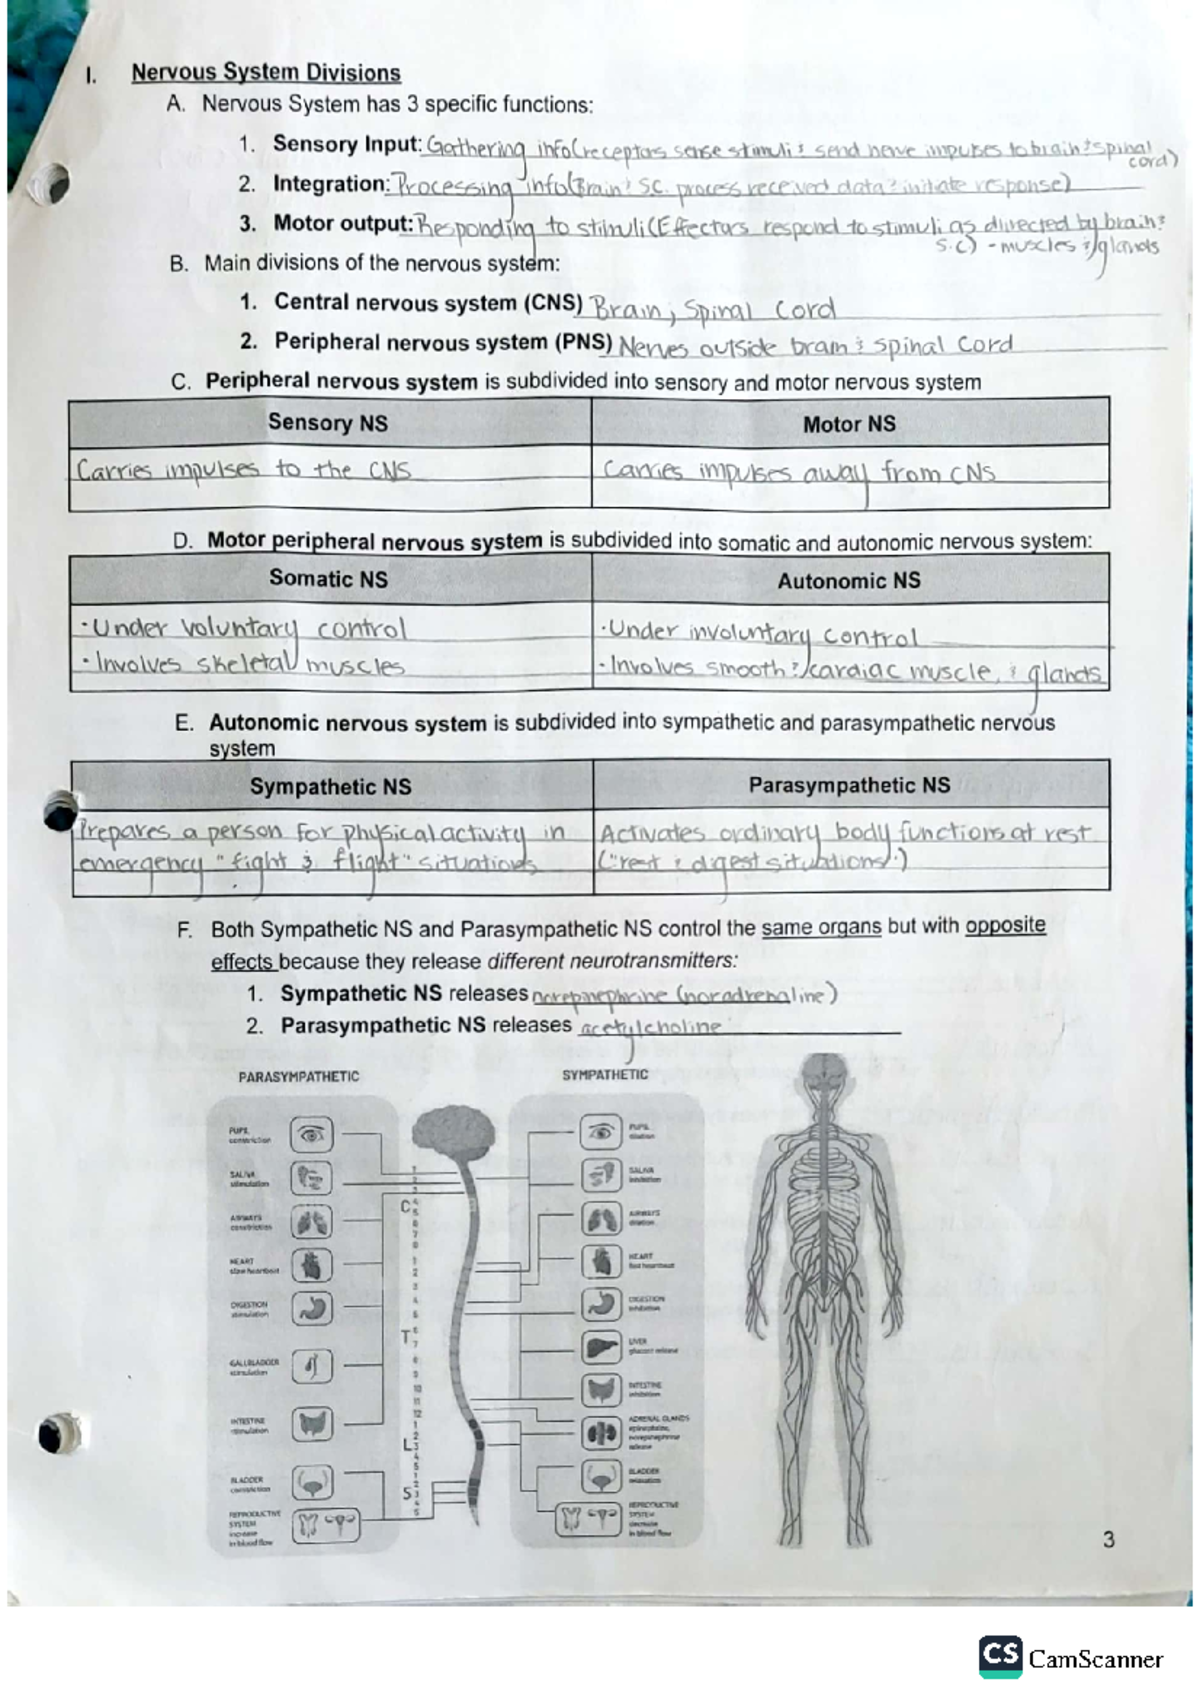 I. Nervous System Divisions
A. Nervous System has 3 specific functions:
1. Sensory Input: Gathering info (receptors sense stimuli & send nerve impulses to brain & spinal cord)
2. Integration: Processing info (Brain & S.C. process received data & initiate response)
3. Motor output: Responding to stimuli (Effectors respond to stimuli as directed by brain &
s.c) - muscles & glands
B. Main divisions of the nervous system:
1. Central nervous system (CNS) Brain; Spinal Cord
2. Peripheral nervous system (PNS) Nerves outside brain & spinal cord
C. Peripheral nervous system is subdivided into sensory and motor nervous system
Sensory NS Motor NS
Carries impulses to the CNS Carries impulses away from CNS
D. Motor peripheral nervous system is subdivided into somatic and autonomic nervous system:
Somatic NS Autonomic NS
· Under voluntary control · Under involuntary control
· Involves skeletal muscles · Involves smooth & cardiac muscle, & glands
E. Autonomic nervous system is subdivided into sympathetic and parasympathetic nervous
system
Sympathetic NS Parasympathetic NS
Prepares a person for physical activity in Activates ordinary body functions at rest
emergency "fight & flight" situations ("rest & digest situations")
F. Both Sympathetic NS and Parasympathetic NS control the same organs but with opposite
effects because they release different neurotransmitters:
1. Sympathetic NS releases norepinephrine (noradrenaline)
2. Parasympathetic NS releases acetylcholine
PARASYMPATHETIC SYMPATHETIC
PUPIL
constriction
SALIVA
stimulation
AIRWAYS
constriction
HEART
slow heartbeat
DIGESTION
stimulation
GALLBLADDER
stimulation
INTESTINE
stimulation
BLADDER
constriction
REPRODUCTIVE
SYSTEM
increase
in blood flow
C
T
L
S
PUPIL
dilation
SALIVA
inhibition
AIRWAYS
dilation
HEART
fast heartbeat
DIGESTION
inhibition
LIVER
glucose release
INTESTINE
inhibition
ADRENAL GLANDS
epinephrine,
norepinephrine
release
BLADDER
relaxation
REPRODUCTIVE
SYSTEM
decrease
in blood flow
3
CS CamScanner